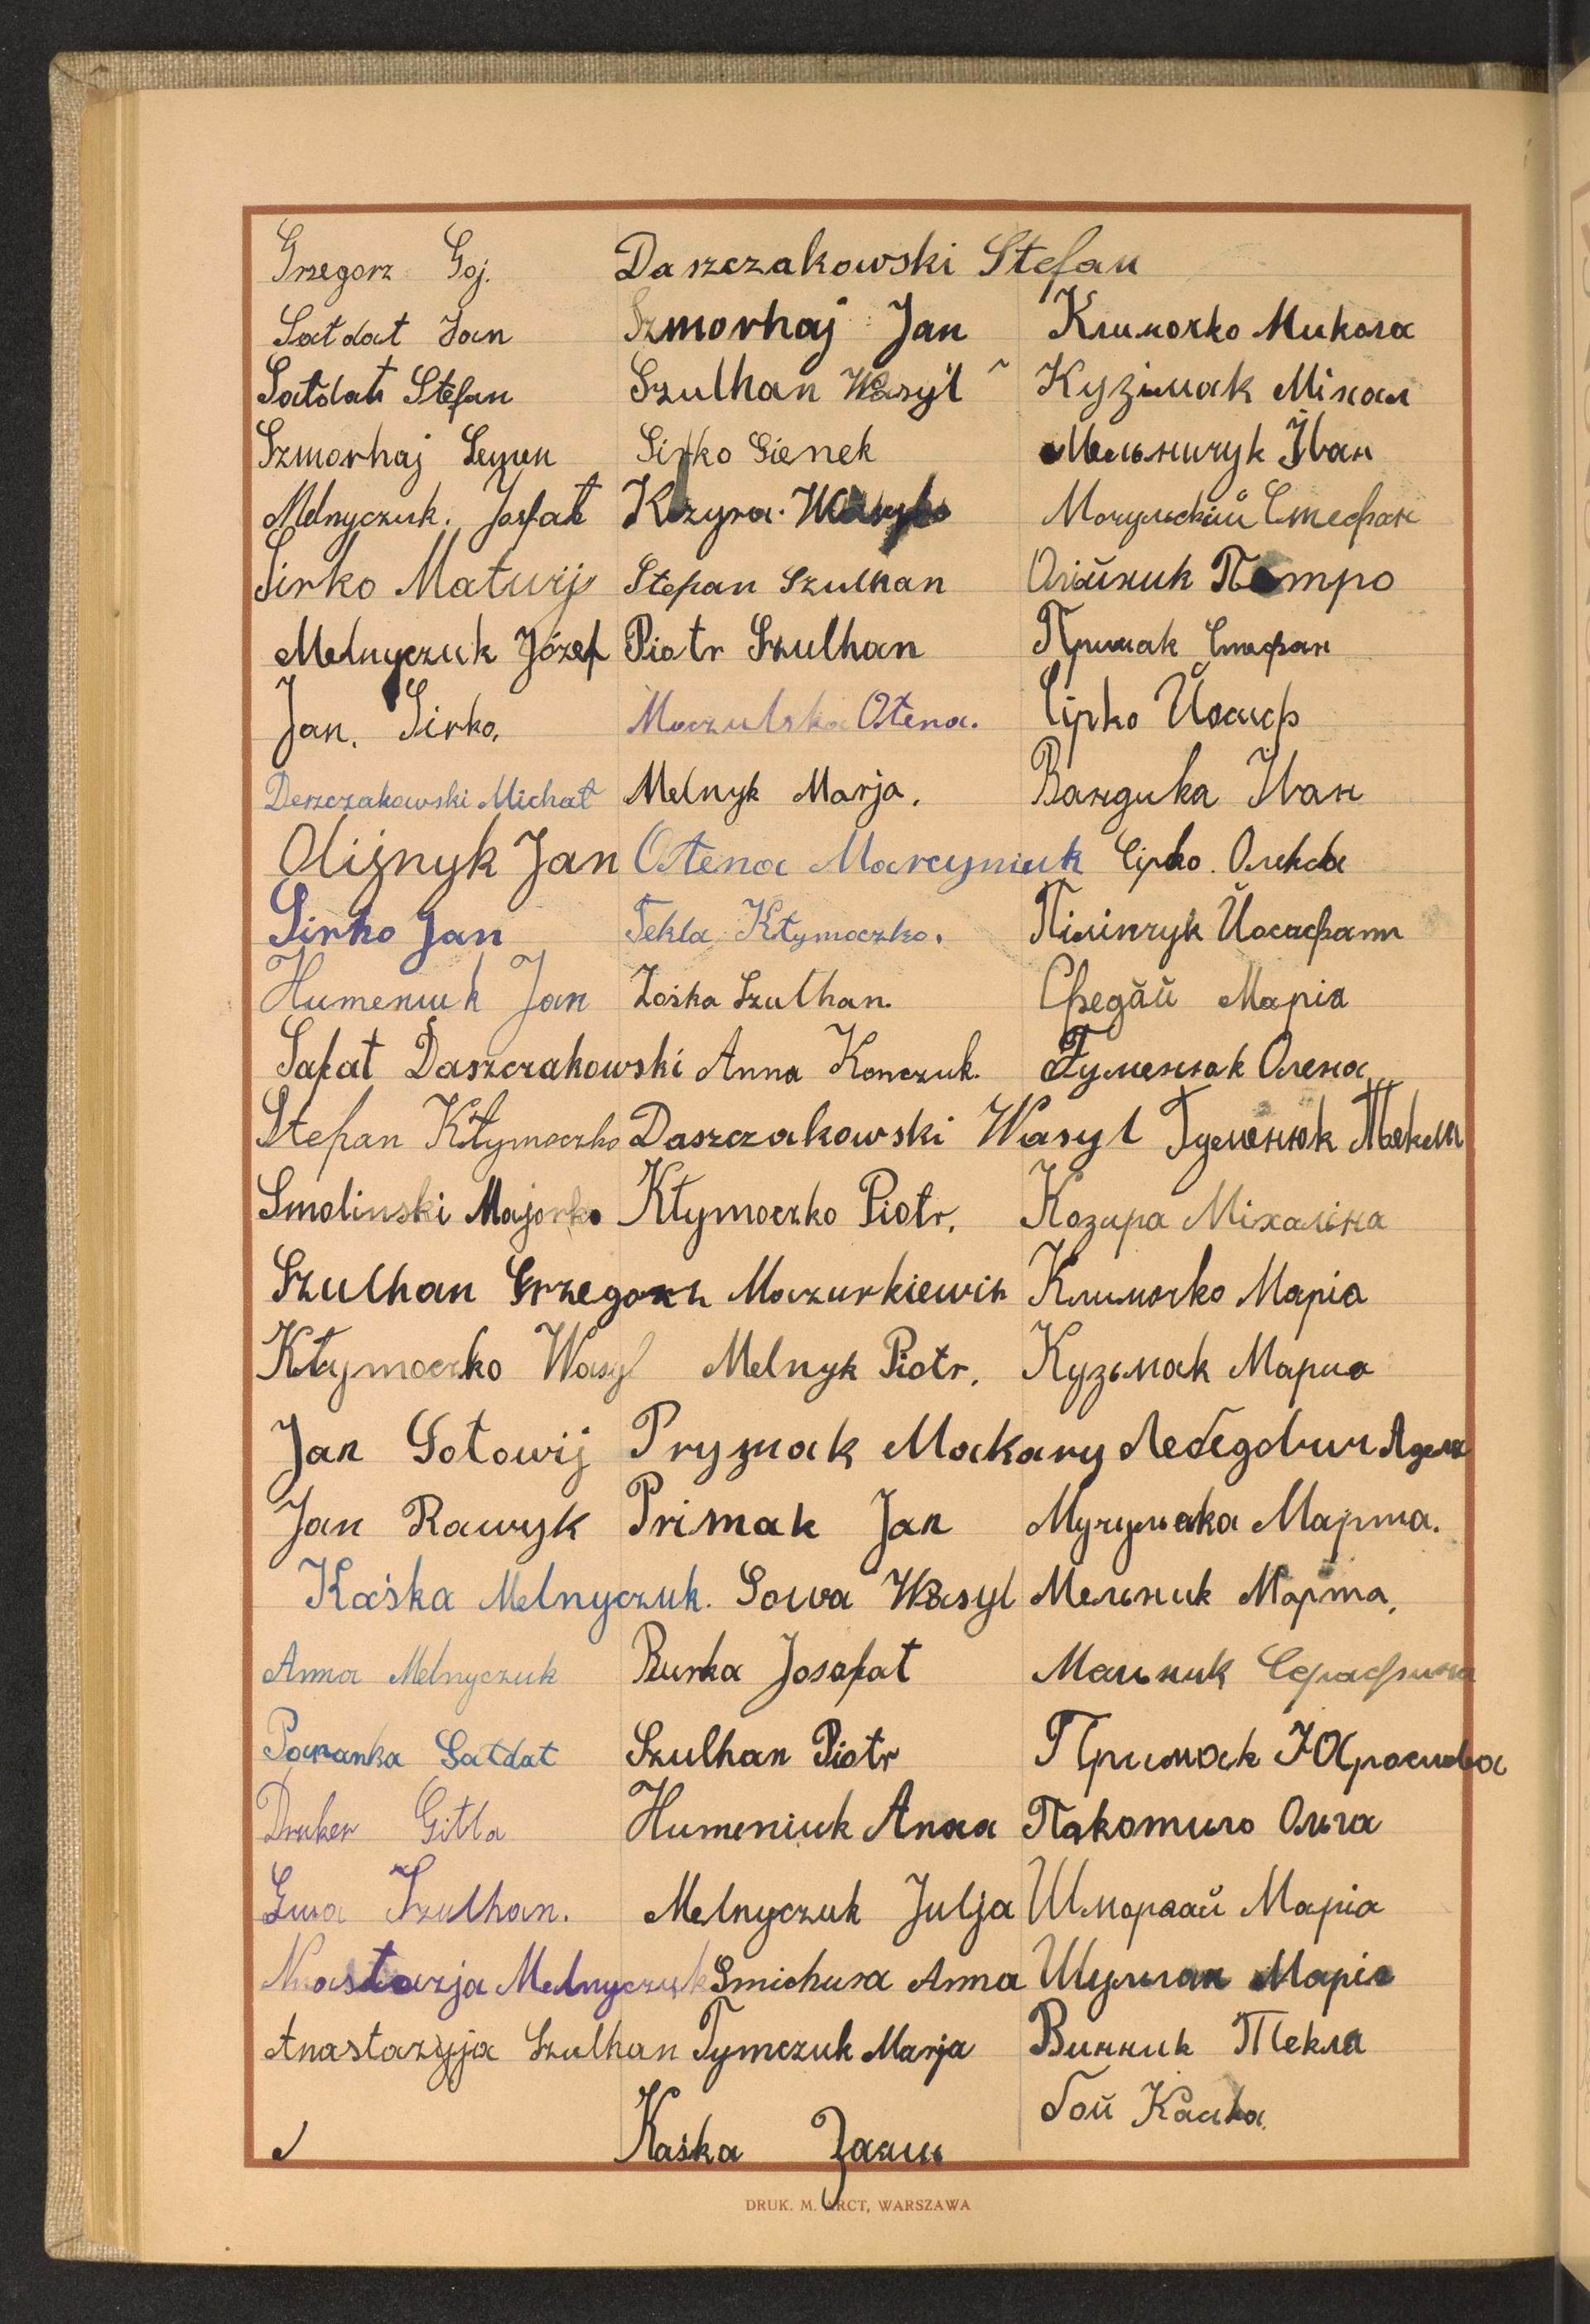 Grzegorz Goj. Daszczakowski Stefan
Sałdat Jan Szmorhaj Jan Климочко Микола
Sałdat Stefan Szulhan Wasyl Кузімак Міхал
Szmorhaj Semen Sirko Sienek Мельничук Іван
Melnyczuk. Josfat Kozyra. Мачульский Стефан
Sirko Matwij Stepan Szulhan Олійник Петро
Melnyczuk Józef Piotr Szulhan Примак Стефан
Jan. Sirko. Maczulska Ołena. Сірко Йосиф
Derzczakowski Michał Melnyk Marja. Вандика Іван
Olijnyk Jan Ołena Marcyniuk Сірко. Олекса
Sirko Jan Tekla Kłymoczko. Пилипчук Йосафат
Humeniuk Jan Zośka Szulhan. Сфедай Маріа
Safat Daszczakowski Anna Konczuk. Гуменюк Олена
Stefan Kłymoczko Daszczakowski Wasyl Гуменюк Текля
Smolinski Majorko Kłymoczko Piotr. Козира Міхаліна
Szulhan Grzegorz Mazurkiewicz Климочко Маріа
Kłymoczko Wasyl Melnyk Piotr. Кузьмак Мариа
Jan Sotowij Prymak Makary Лебедович Аделя
Jan Rawryk Primak Jan Марта.
Kaśka Melnyczuk. Sowa Wasyl Мельник Марта.
Anna Melnyczuk Burka Josafat Мельник Серафина
Paranka Sałdat Szulhan Piotr Примак
Druker Gitla Humeniuk Anna Пакотило Ольга
Ewa Szulhan. Melnyczuk Julja Шморгай Маріа
Nastazja Melnyczuk Smichura Anna Шулган Маріа
Anastazyja Szulhan Tymczuk Marja Винник Текля
Гой Каська.
Kaśka Заяць
DRUK. M. ARCT, WARSZAWA